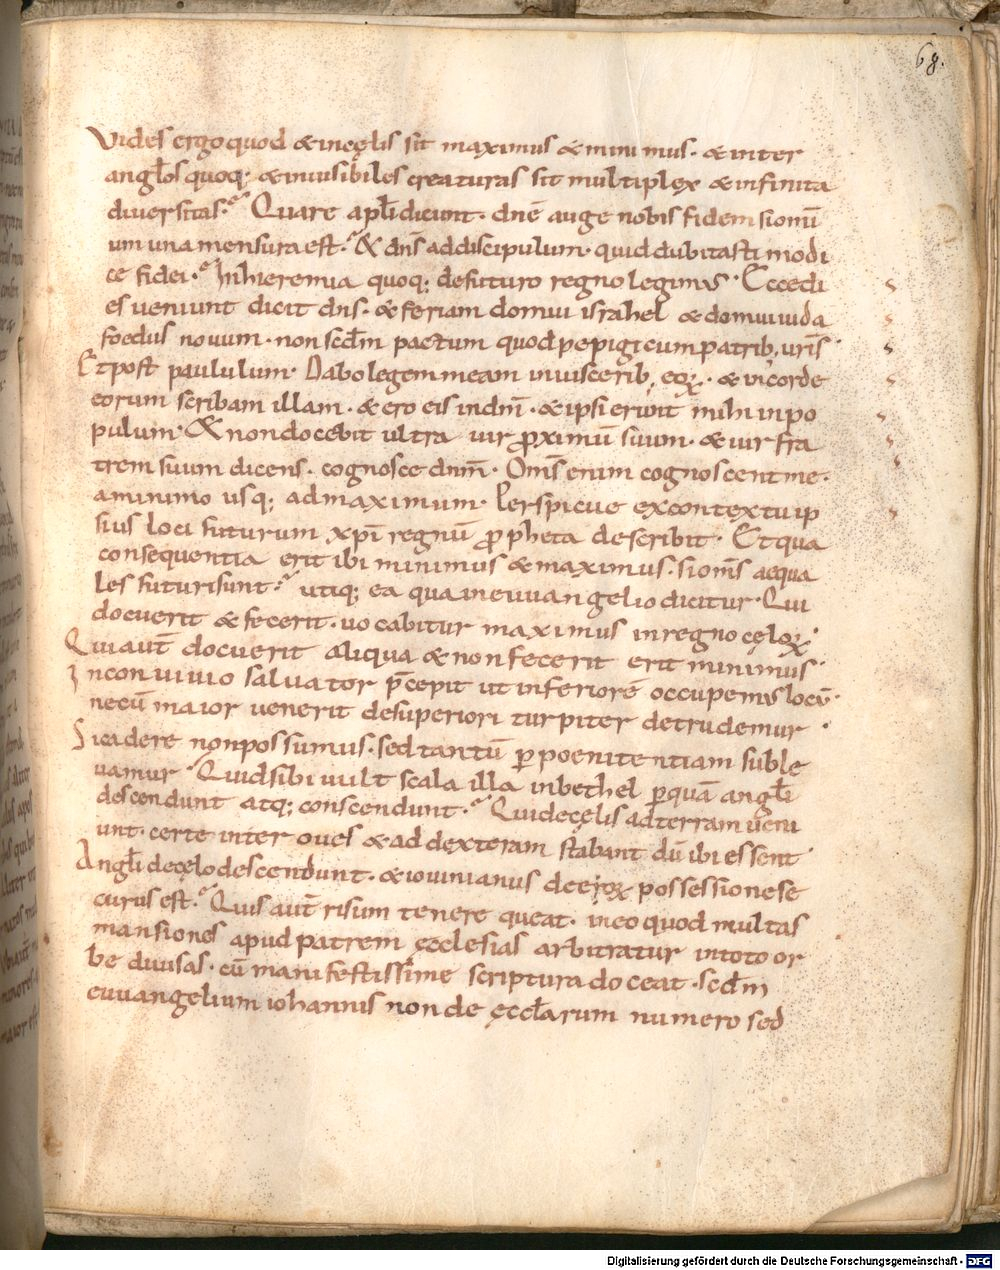 68.
Vides ergo quod & in cęlis sit maximus & minimus· & inter
angłos quoq;· & inuisibiles creaturas sit multiplex & infinita
diuersitas? Quare apłi dicunt· dnē auge nobis fidem si omniū
um una mensura est? & dn̄s ad discipulum· quid dubitasti modi
ce fidei? In hieremia quoq; de futuro regno legimus· Ecce di
es ueniunt dicit dns· & feriam domui israhel & domui iuda
foedus nouum· non scdm̄ pactum quod pepigi cum patrib; uris̄·
Et post paululum· Dabo legem meam in uiscerib; eoꝝ· & in corde
eorum scribam illam· & ero eis in dnm̄· & ipsi erunt mihi in po
pulum· & non docebit ultra uir ꝓximū suum· & uir fra
trem suum dicens· cognosce dnm̄· Oms̄ enim cognoscent me·
a minimo usq; ad maximum· Perspicue ex contextu ip
sius loci futurum xpī regnū ꝓpheta describit· Et qua
consequentia erit ibi minimus & maximus· si oms̄ aequa
les futuri sunt? utiq; ea qua in euuangelio dicitur· Qui
docuerit & fecerit· uocabitur maximus in regno cęloꝝ·
Qui aut̄ docuerit aliqua & non fecerit erit minimus·
In conuiuio saluator p̄cepit ut inferiorē occupemus locū·
ne cū maior uenerit de superiori turpiter detrudemur·
Si cadere non possumus· sed tantū ꝑ poenitentiam suble
uamur· Quid sibi uult scala illa in bethel ꝑ quā angłi
descendunt atq; conscendunt? Qui de cęlis ad terram ueni
unt· certe inter oues & ad dexteram stabant dū ibi essent·
Angłi de cęlo descendunt· & iouinianus de eoꝝ possessione se
curus est? Quis aut̄ risum tenere queat· in eo quod multas
mansiones apud patrem ęcclesias arbitratur in toto or
be diuisas· cū manifestissime scriptura doceat· scdm̄
euuangelium iohannis non de ęccłarum numero sed
Digitalisierung gefördert durch die Deutsche Forschungsgemeinschaft - DFG